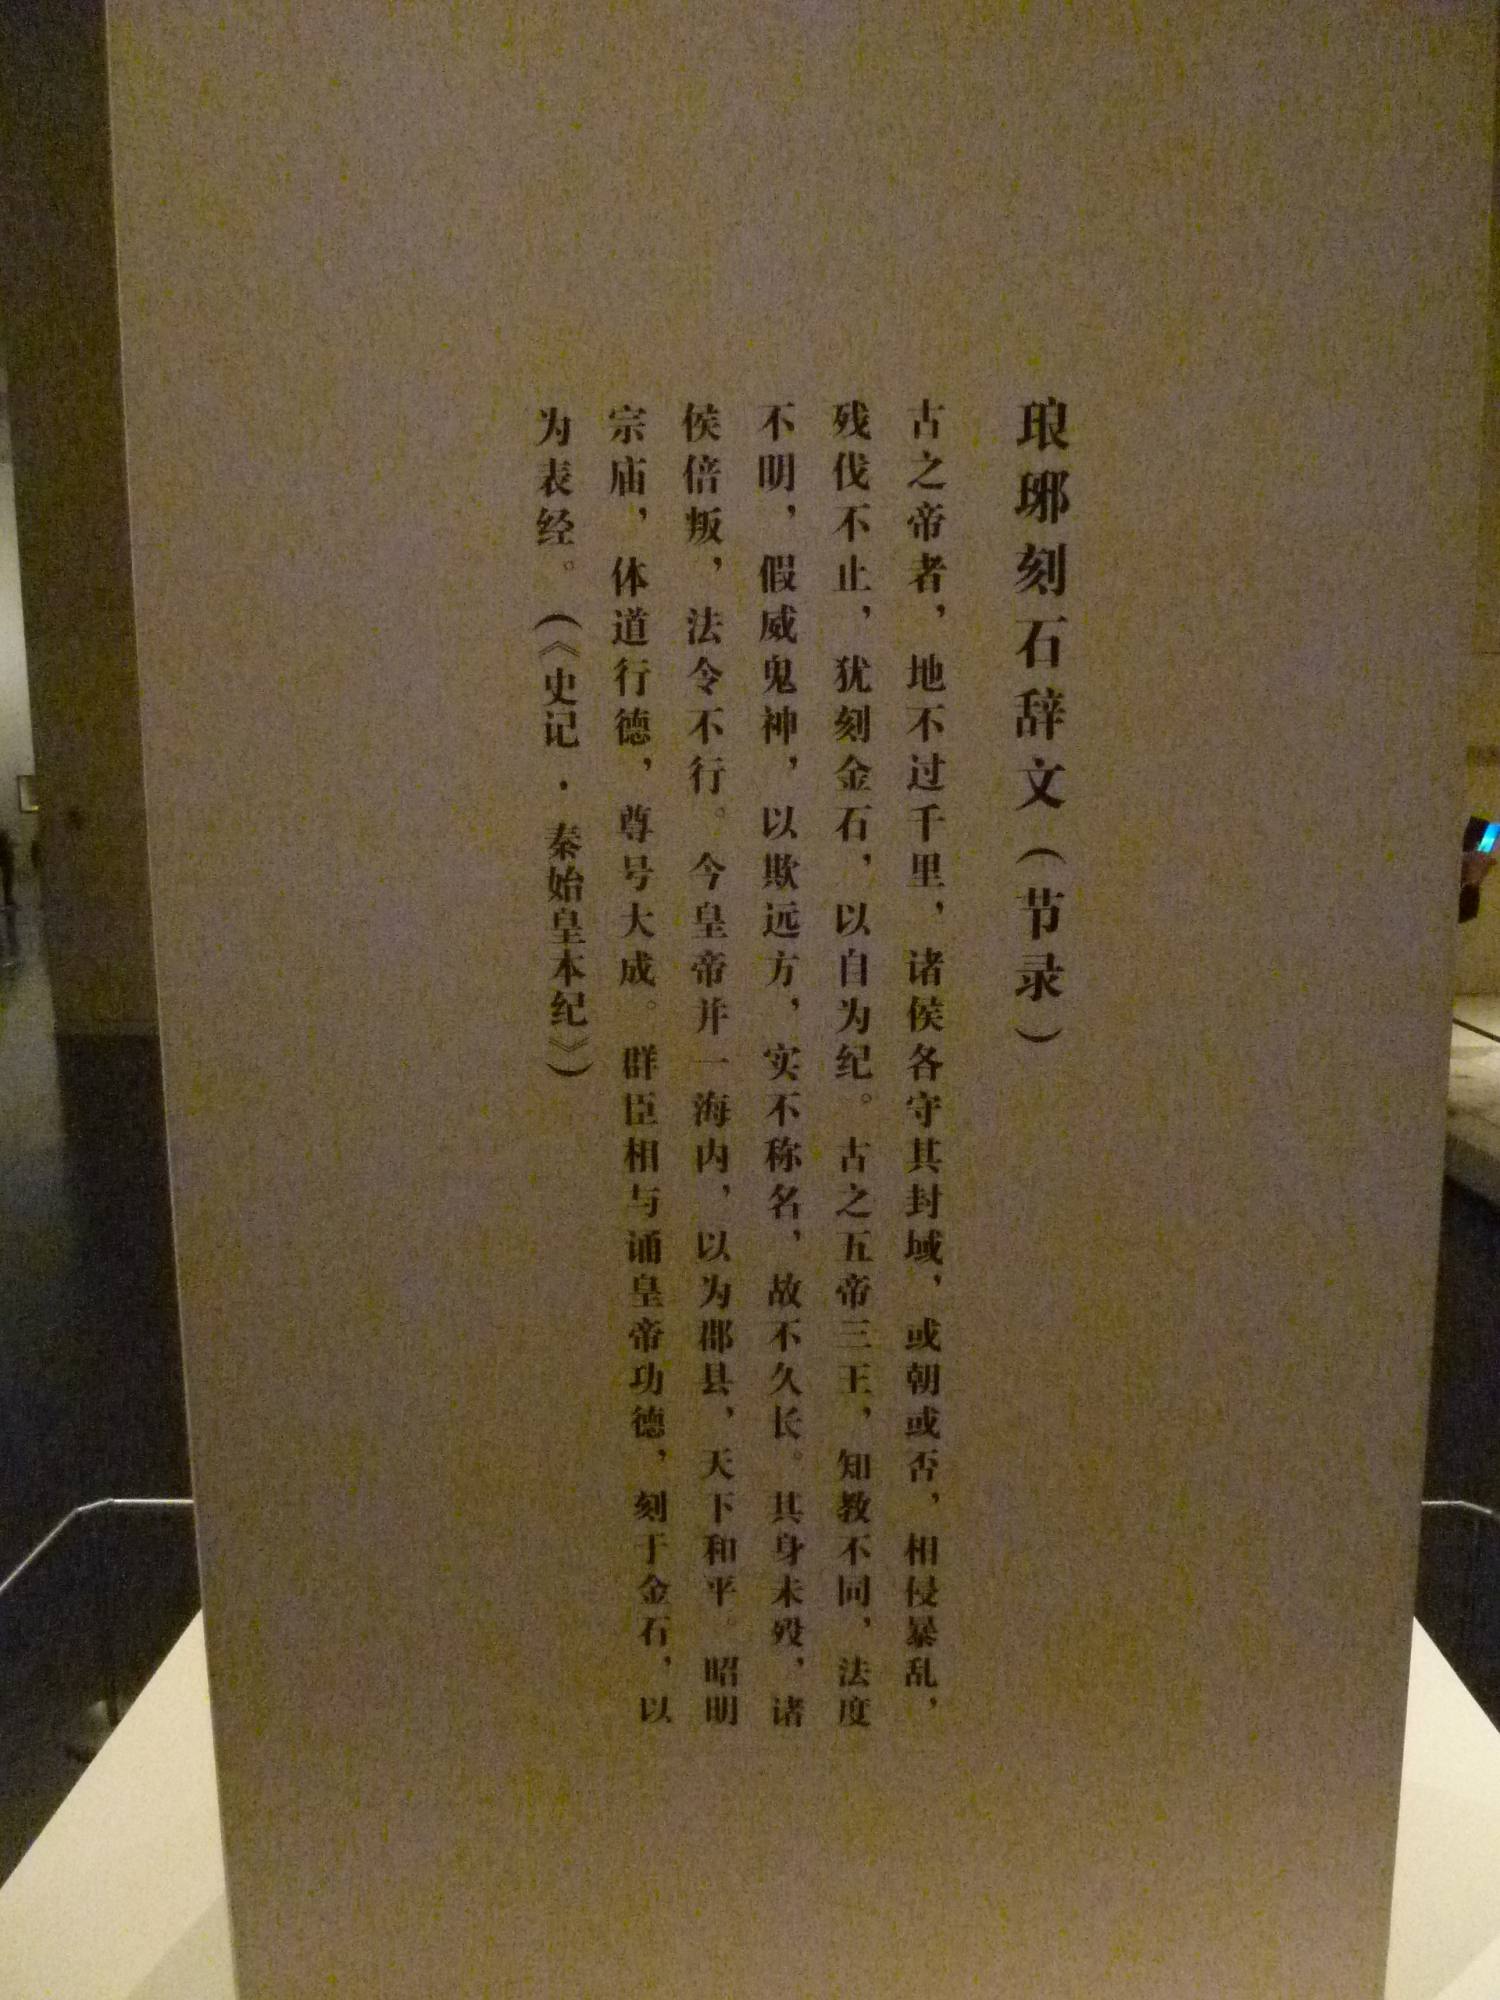 琅琊刻石辞文（节录）
古之帝者，地不过千里，诸侯各守其封域，或朝或否，相侵暴乱，
残伐不止，犹刻金石，以自为纪。古之五帝三王，知教不同，法度
不明，假威鬼神，以欺远方，实不称名，故不久长。其身未殁，诸
侯倍叛，法令不行。今皇帝并一海内，以为郡县，天下和平。昭明
宗庙，体道行德，尊号大成。群臣相与诵皇帝功德，刻于金石，以
为表经。（《史记·秦始皇本纪》）